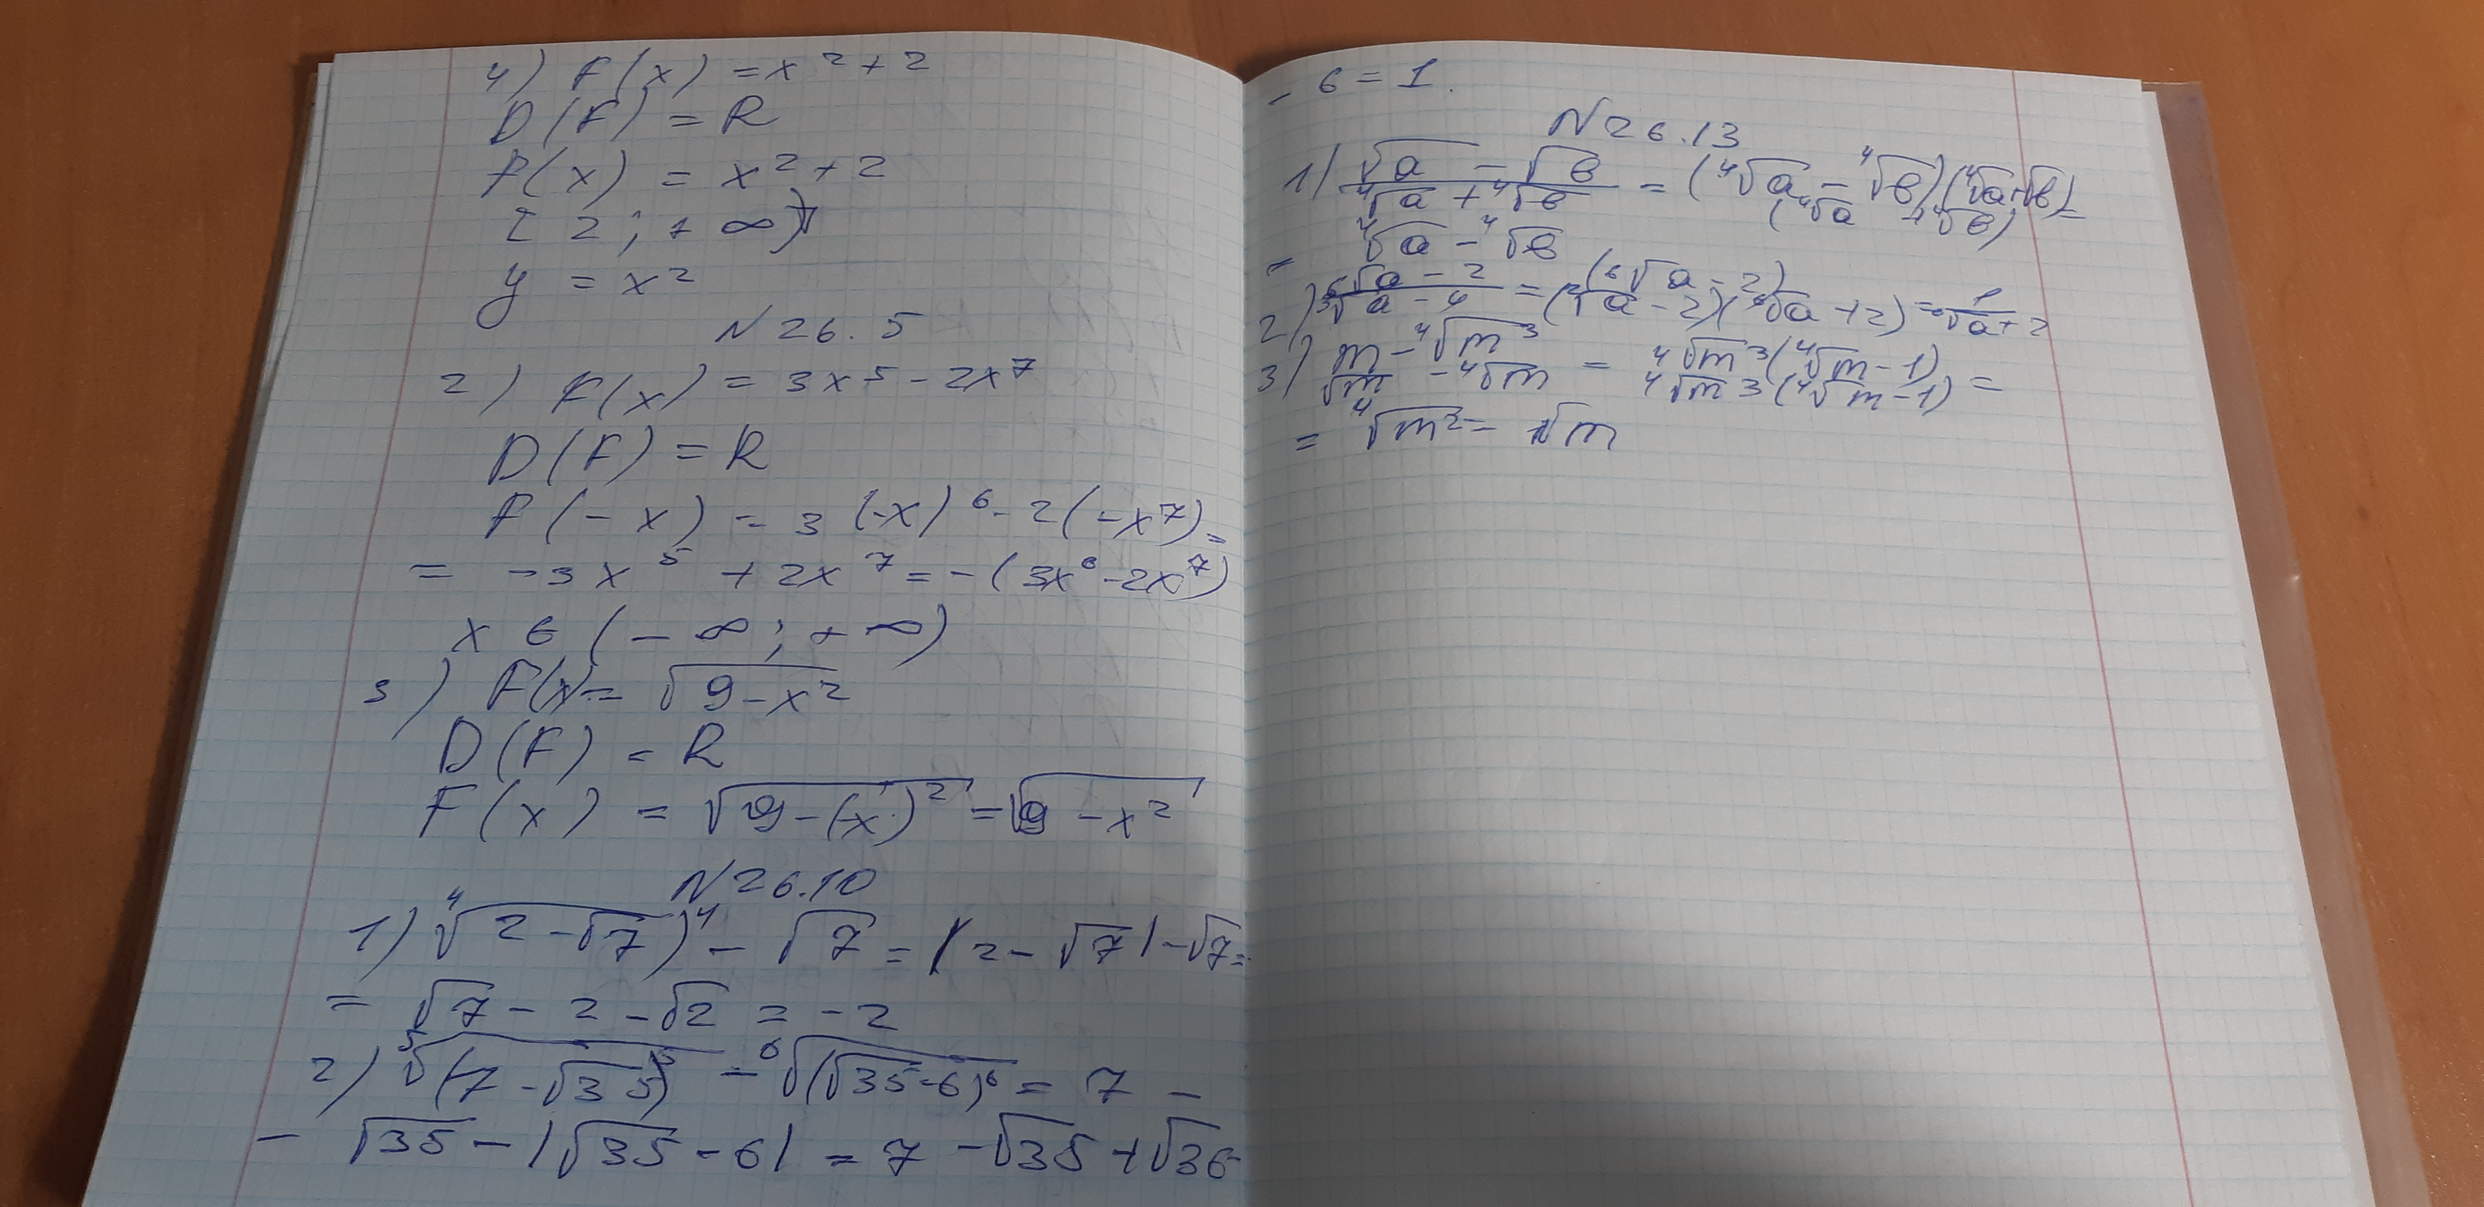 4) F(x) = x² + 2
D(F) = R
F(x) = x² + 2
[2; + ∞)
y = x²
N 26.5
2) F(x) = 3x⁵ - 2x⁷
D(F) = R
F(-x) = 3(-x)⁶ - 2(-x⁷) =
= -3x⁵ + 2x⁷ = -(3x⁶ - 2x⁷)
x ∈ (-∞; +∞)
3) F(x) = √(9-x²)
D(F) = R
F(x) = √(9-(x)²) = √(9-x²)
N 26.10
1) ⁴√(2-√7)⁴ - √7 = |2-√7| - √7 =
= √7 - 2 - √2 = -2
2) ⁵√(7-√35)⁵ - ⁶√(√35-6)⁶ = 7 -
- √35 - |√35-6| = 7 - √35 + √36
- 6 = 1.
N 26.13
1) (√a - √b)/(⁴√a + ⁴√b) = (⁴√a - ⁴√b)(⁴√a+√b)/(⁴√a + ⁴√b) =
= ⁴√a - ⁴√b
2) (⁶√a - 2)/(³√a - 4) = (⁶√a - 2)/((⁶√a - 2)(⁶√a + 2)) = 1/(⁶√a + 2)
3) (m - ⁴√m³)/(√m - ⁴√m) = ⁴√m³(⁴√m - 1)/⁴√m3(⁴√m - 1) =
= ⁴√m² = √m